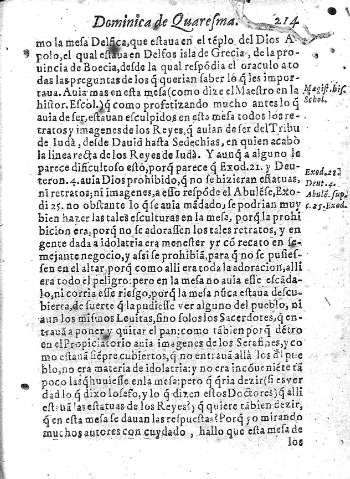 Dominica de Quaresma. 214
mo la mesa Delfica, que estaua en el tẽplo del Dios A-
polo, el qual estaua en Delfos isla de Grecia, de la pro-
uincia de Boecia, desde la qual respõdia el oraculo a to
das las preguntas de los q̃ querian saber lo q̃ les impor-
taua. Auia mas en esta mesa (como dize el Maestro en la
histor. Escol.) q̃ como profetizando mucho antes lo q̃
auia de ser, estauan esculpidos en esta mesa todos los re-
tratos y imagenes de los Reyes, q̃ auian de ser del Tribu
de Iuda, desde Dauid hasta Sedechias, en quien acabò
la linea recta de los Reyes de Iudà. Y aunq̃ a alguno le
parece dificultoso esto, porq̃ parece q̃ Exod. 21. y Deu-
teron. 4. auia Dios prohibido, q̃ no se hizieran estatuas,
ni retratos; ni imagenes, a esso respõde el Abulẽse, Exo-
di 25. no obstante lo q̃ se auia mãdado; se podrian muy
bien hazer las tales esculturas en la mesa, porq̃ la prohi
bicion era; porq̃ no se adorassen los tales retratos, y en
gente dada a idolatria era menester yr cõ recato en se-
mejante negocio, y assi se prohibia, para q̃ no se pusies-
sen en el altar, porq̃ como alli era toda la adoracion, alli
era todo el peligro: pero en la mesa no auia esse escãda-
lo, ni corria esse riesgo, porq̃ la mesa nũca estaua descu-
bierta, de suerte q̃ la pudiesse ver alguno del pueblo, ni
aun los mismos Leuitas, sino solos los Sacerdotes, q̃ en-
trauã a poner y quitar el pan; como tãbien porq̃ dẽtro
en el Propiciatorio auia imagenes de los Serafines, y co
mo estauã siẽpre cubiertos, q̃ no entrauã allà los dl pue
blo, no era materia de idolatria: y no era incõueniẽte tã
poco las q̃ huuiesse en la mesa; pero q̃ q̃ria dezir (si es ver
dad lo q̃ dixo Iosefo, y lo q̃ dizen estos Doctores) q̃ alli
estauã las estatuas de los Reyes? q̃ quiere tãbien dezir,
q̃ en esta mesa se dauan las respuestas? Porq̃ yo mirando
muchos autores con cuydado, hallo que esta mesa de
los
Magist. his.
Schol.
Exod. 21.
Deut. 4.
Abulẽ. sup.
c. 25. Exod.